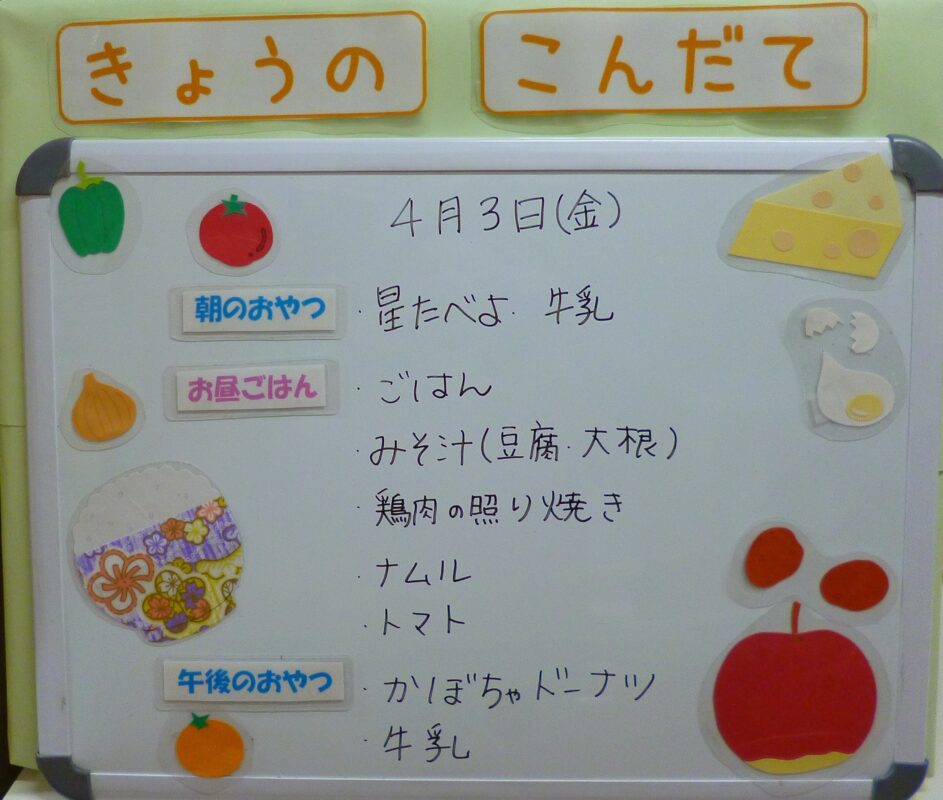 きょうの こんだて
4月3日(金)
朝のおやつ ・星たべよ・ 牛乳
お昼ごはん ・ごはん
・みそ汁(豆腐・大根)
・鶏肉の照り焼き
・ナムル
・トマト
午後のおやつ ・かぼちゃドーナツ
・牛乳